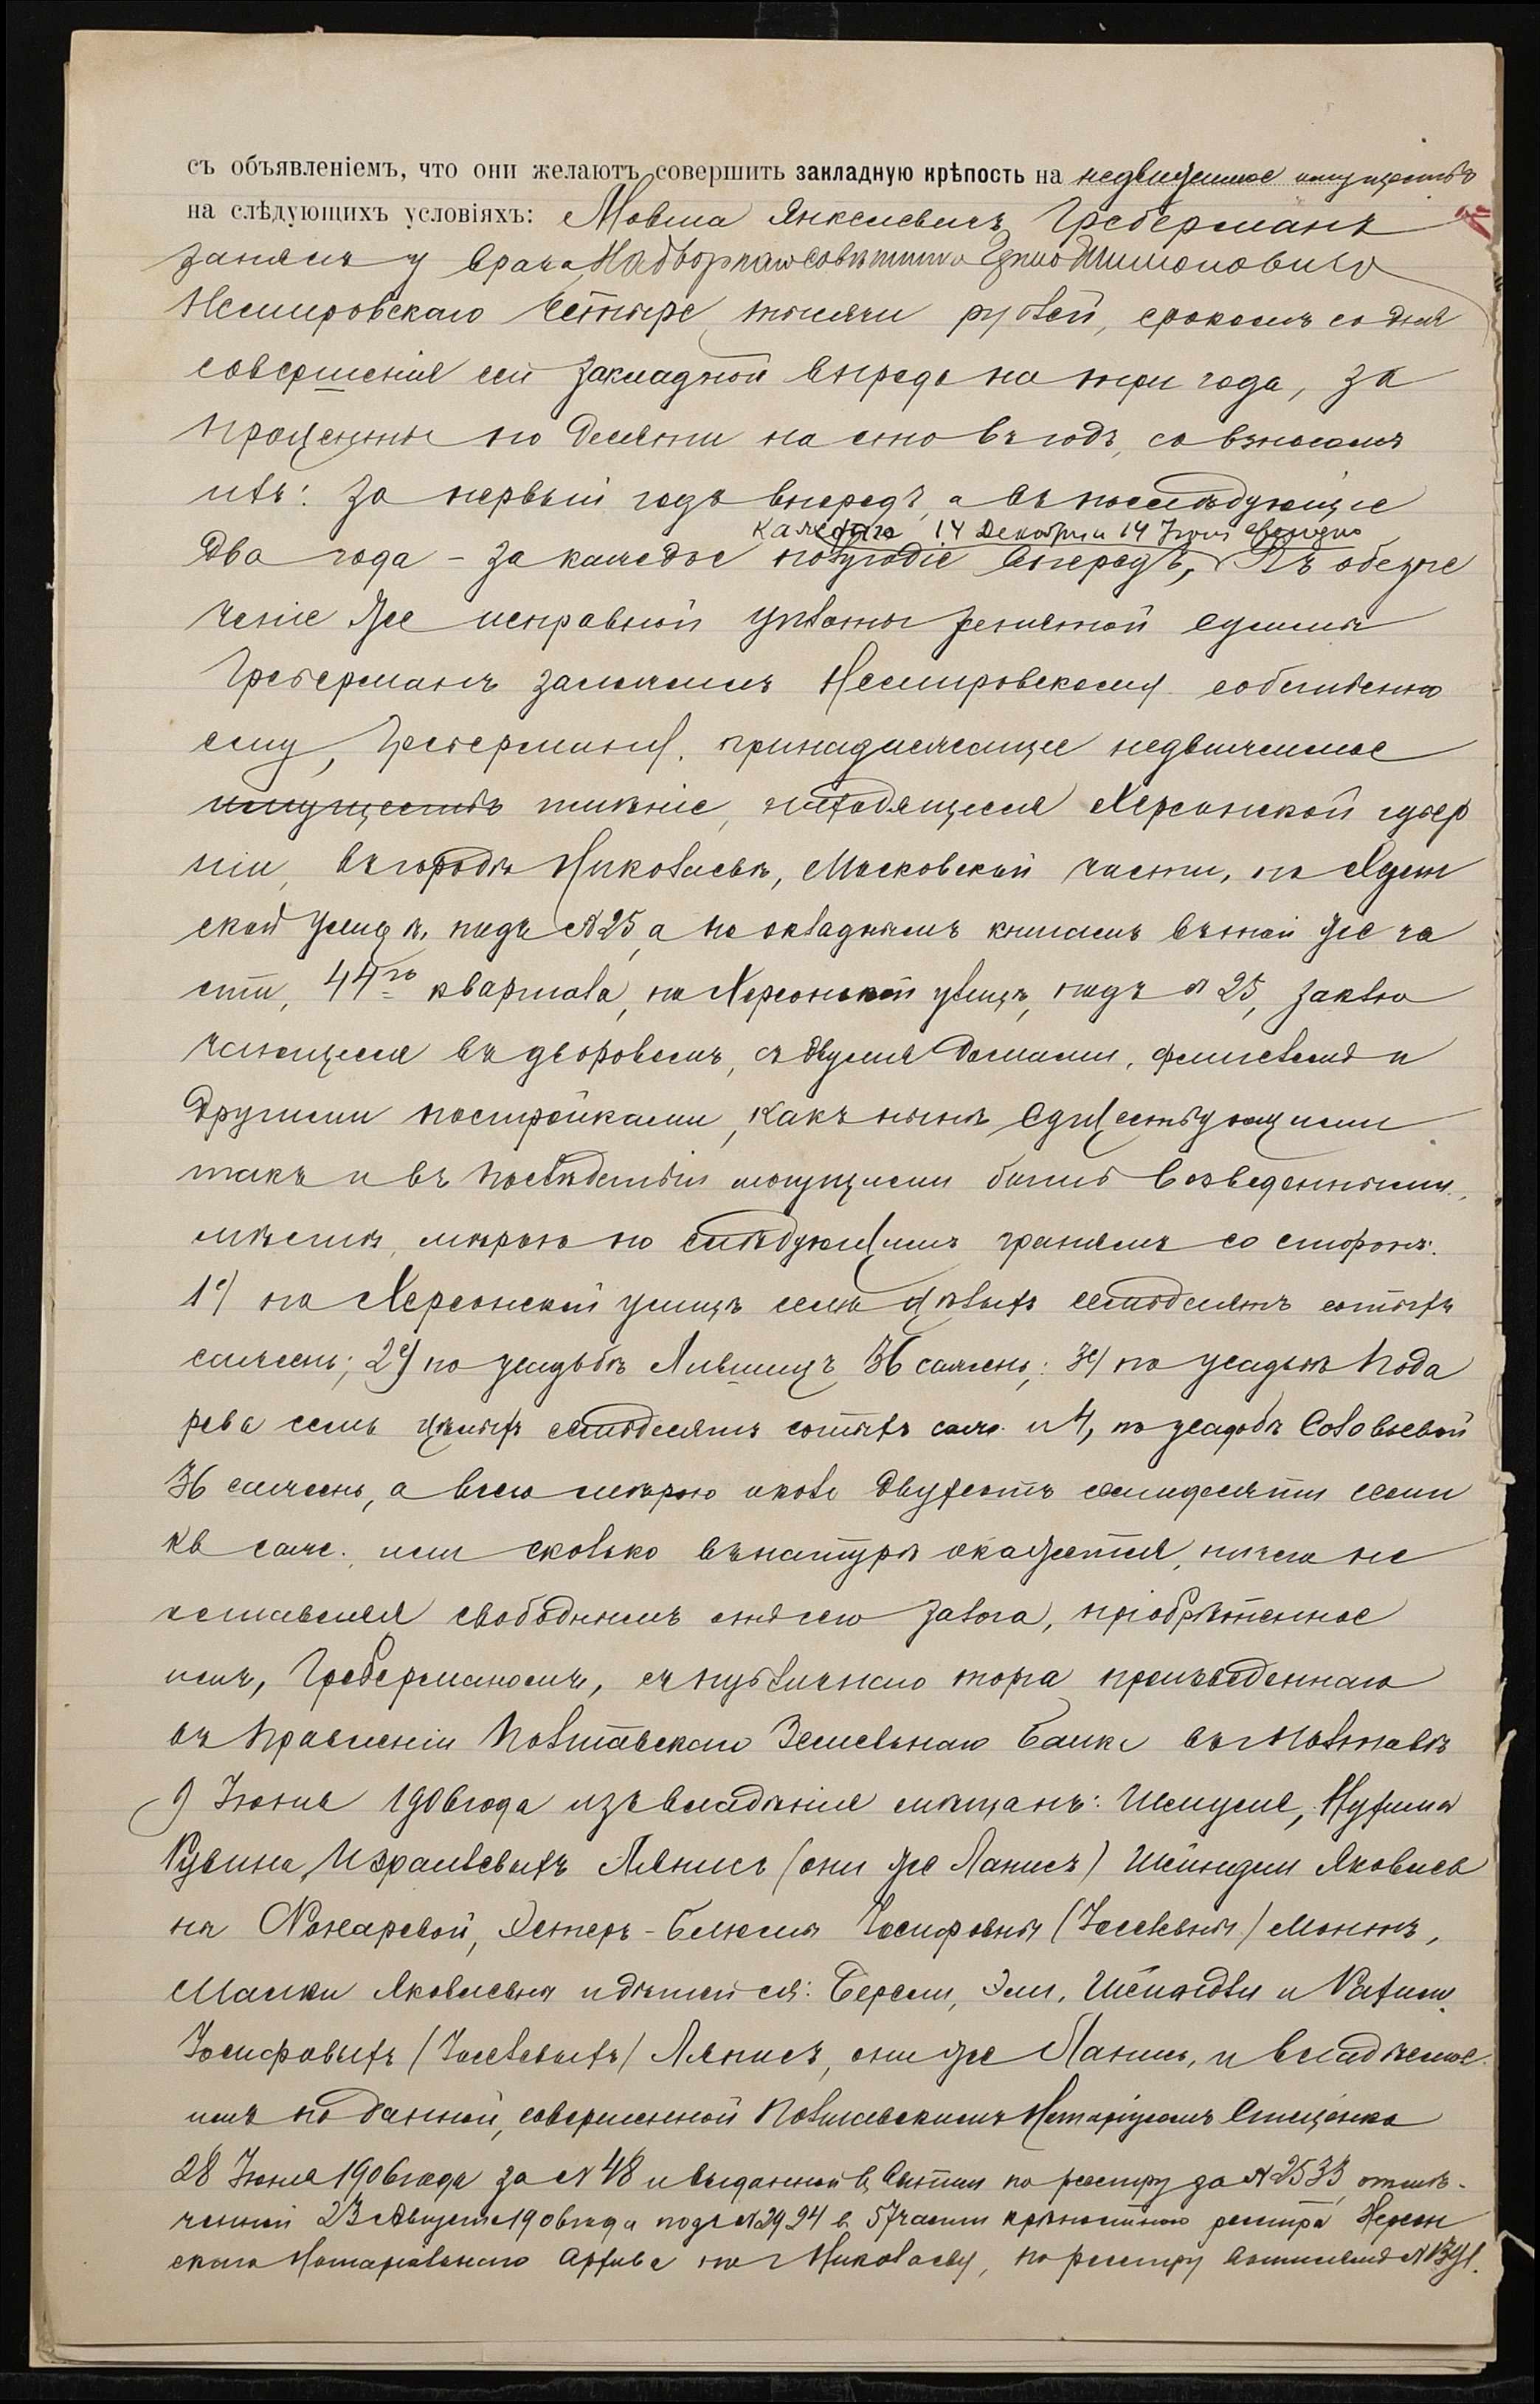 съ объявленіемъ, что они желаютъ совершить закладную крѣпость на недвижимое имущество
на слѣдующихъ условіяхъ: Мовша Янкелевичъ Греберманъ
занялъ у врача Надворнаго Совѣтника Шимоновича
Немировскаго четыре тысячи рублей, срокомъ со дня
совершенія сей закладной впредь на три года, за
проценты по десяти на сто въ годъ, со взносомъ
ихъ: за первый годъ впередъ, а въ послѣдующіе
каждаго 14 Декабря и 14 Іюня
два года - за каждое полугодіе впередъ, Въ обезпе
ченіе же исправной уплаты занятой суммы
Греберманъ заложилъ Немировскому собственно
ему, Греберману, принадлежащее недвижимое
имущество имѣніе, находящееся Херсонской губер
ніи, въ городѣ Николаевѣ, Московской части, на Херсон
ской улицѣ, подъ № 25, а по окладнымъ книгамъ въ той же ча
сти, 44го квартала, на Херсонской улицѣ, подъ № 25, заклю
чающееся въ дворовомъ, съ двумя домами, флигелемъ и
другими постройками, какъ нынѣ существующими
такъ и въ послѣдствіи могущими быть возведенными,
мѣстѣ, мѣрою по слѣдующимъ гранямъ со сторонъ:
1е) по Херсонской улицѣ семь цѣлыхъ семьдесятъ сотыхъ
сажень; 2е) по усадьбѣ Лившицъ 36 сажень; 3е) по усадьбѣ Пода
рева семь цѣлыхъ семьдесятъ сотыхъ саж. и 4, по усадьбѣ Соловьевой
36 сажень, а всего мѣрою около двухсотъ семидесяти семи
кв. саж. или сколько въ натурѣ окажется, ничего не
оставляя свободнымъ отъ сего залога, пріобрѣтенное
имъ, Греберманомъ, съ публичнаго торга произведеннаго
въ Правленіи Полтавскаго Земельнаго Банка въ г. Полтавѣ
9 Іюня 1906 года изъ владѣнія мѣщанъ: Шмуля, Нухима
Рувина Израилевыхъ Лянись (они же Ланись) Шейндли Яковлев
ны Комаревой, Эстеръ-Блюмы Іосифовны (Іоселевны) Монтъ,
Малки Яковлевны и дѣтей ея: Берели, Эли, Шейндли и Рахили
Іосифовыхъ (Іоселевыхъ) Лянись, они же Ланись, и владѣемое
имъ по данной, совершенной Полтавскимъ Нотаріусомъ Стеценко
28 Іюня 1906 года за № 48 и выданной въ выписи по реестру за № 2533, отмѣ-
ченной 23 Августа 1906 года подъ № 2924 въ 57 части крѣпостнаго реестра Херсон
скаго Нотаріальнаго Архива по г. Николаеву, по реестру